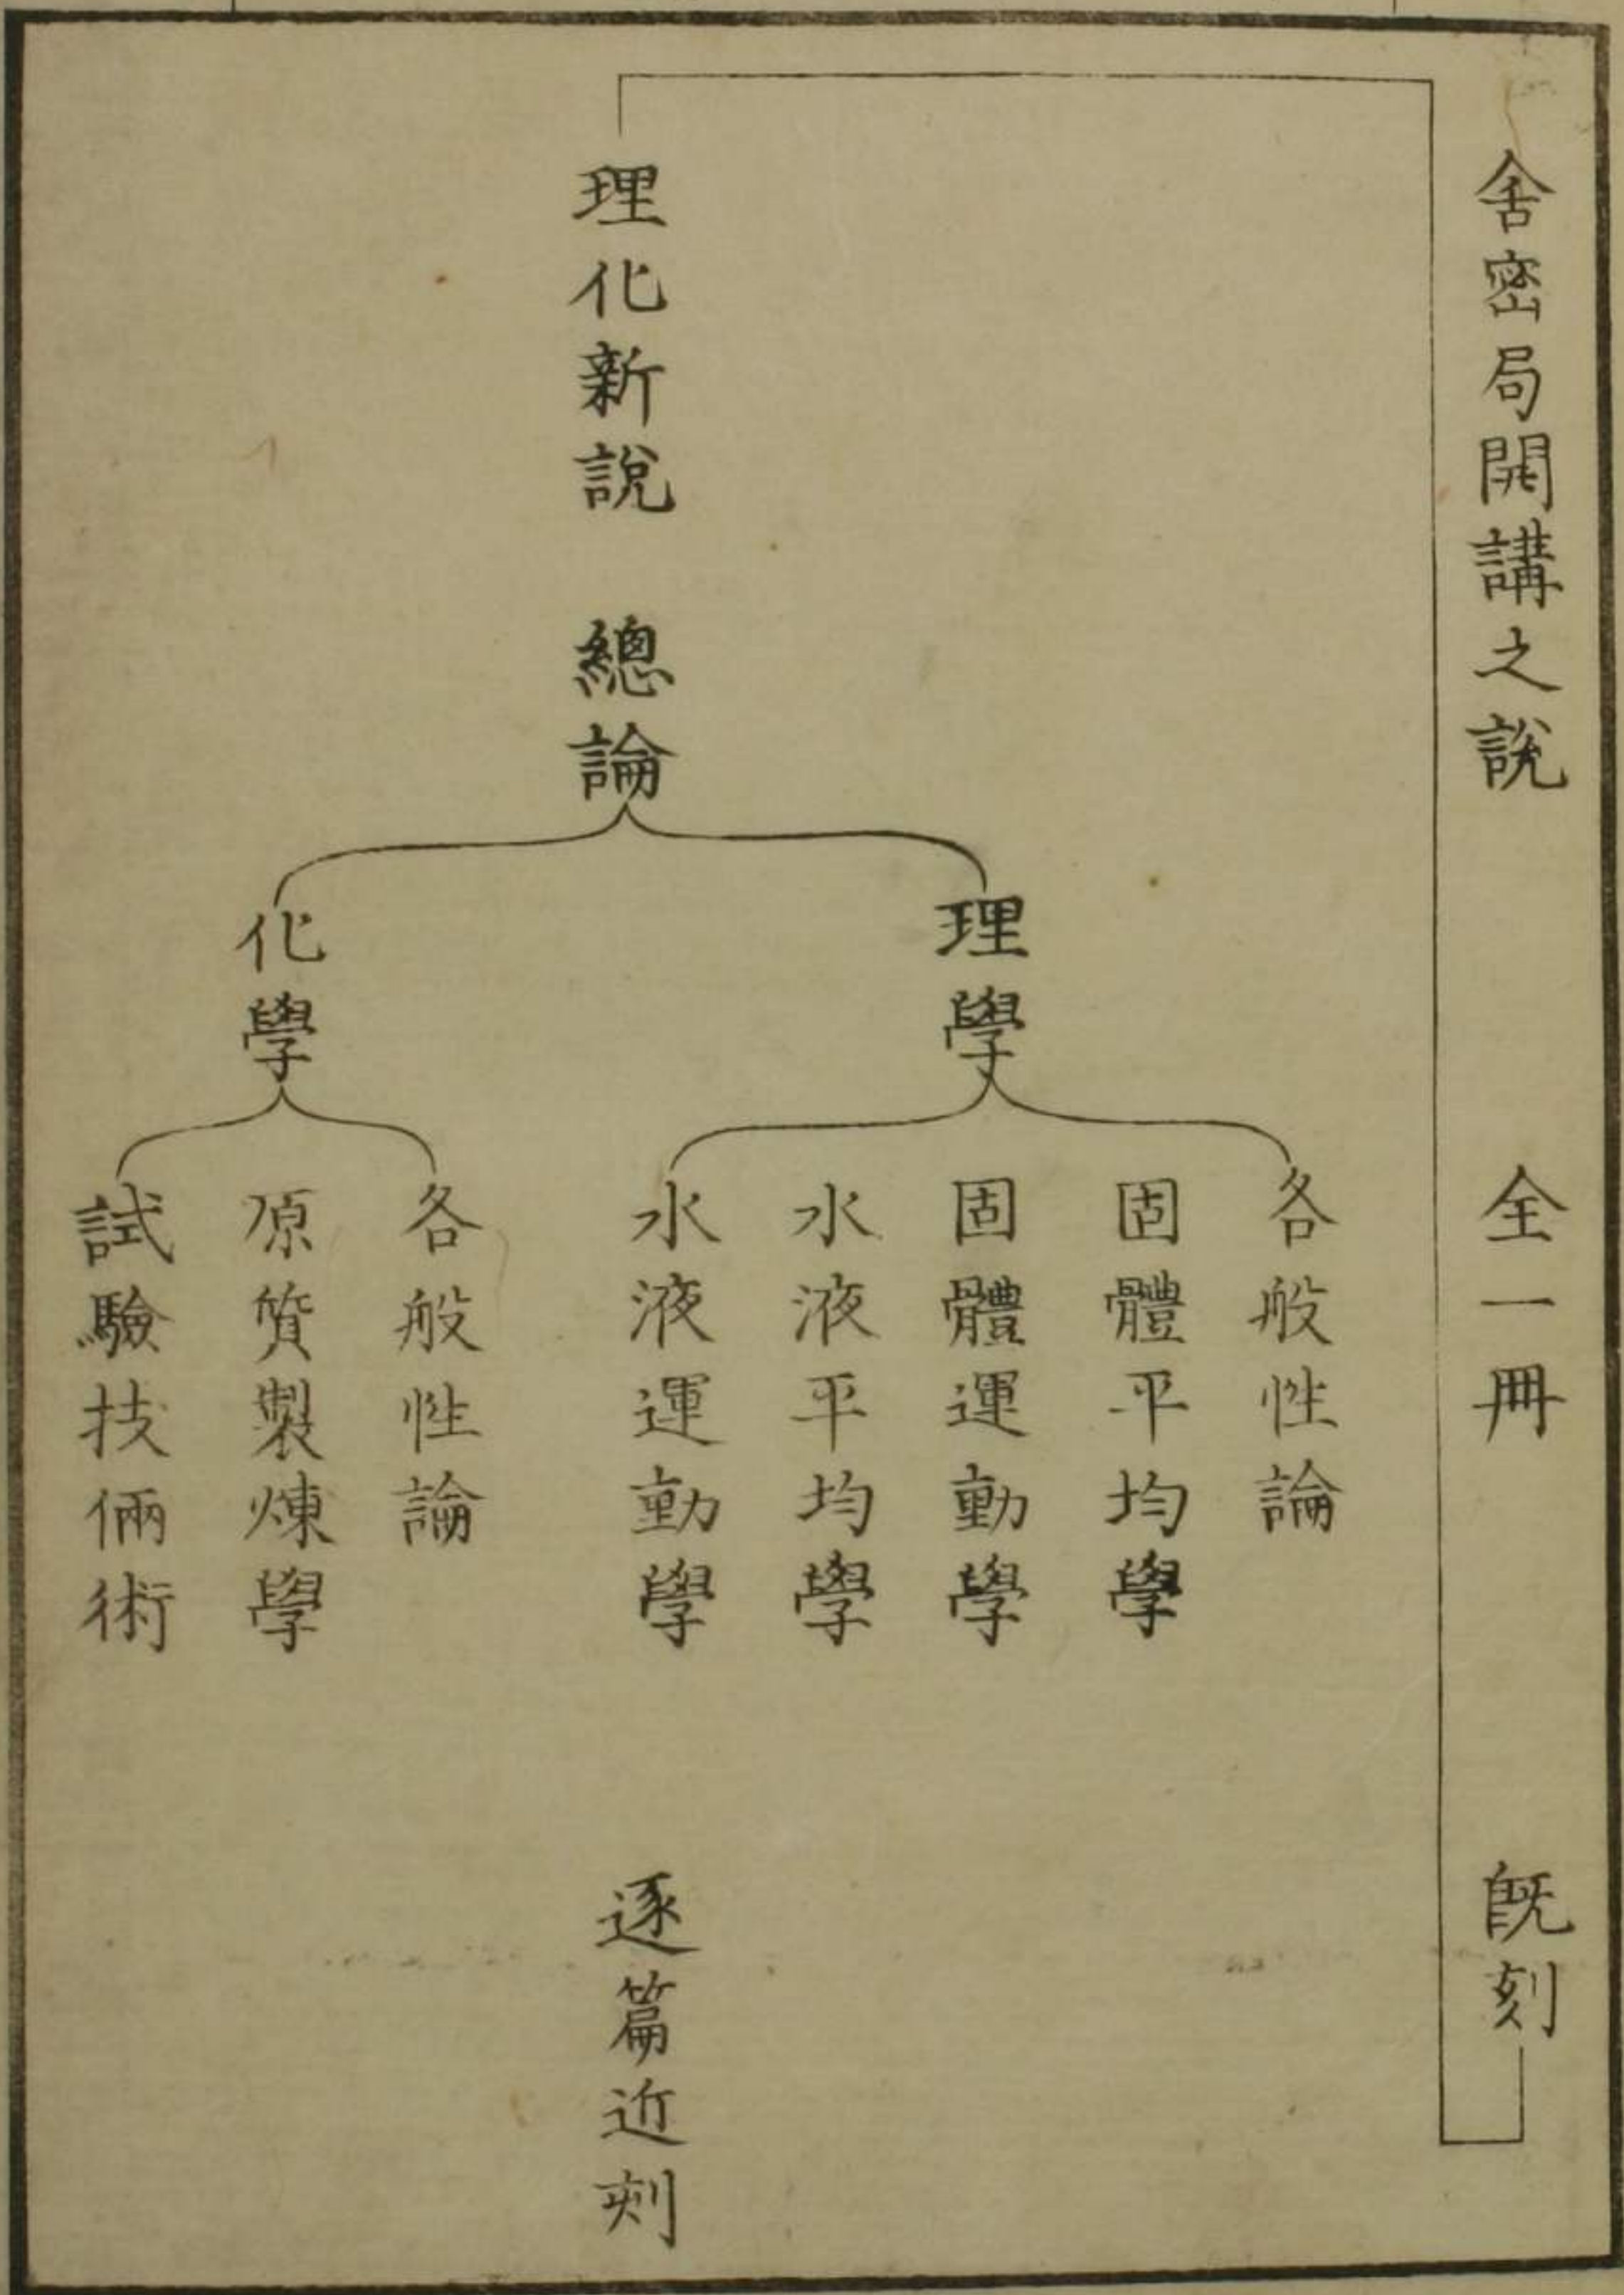 舎密局開講之說　全一冊　既刻
理化新說　總論
理學
各般性論
固體平均學
固體運動學
水液平均學
水液運動學
化學
各般性論
原質製煉學
試驗技倆術
逐篇近刻